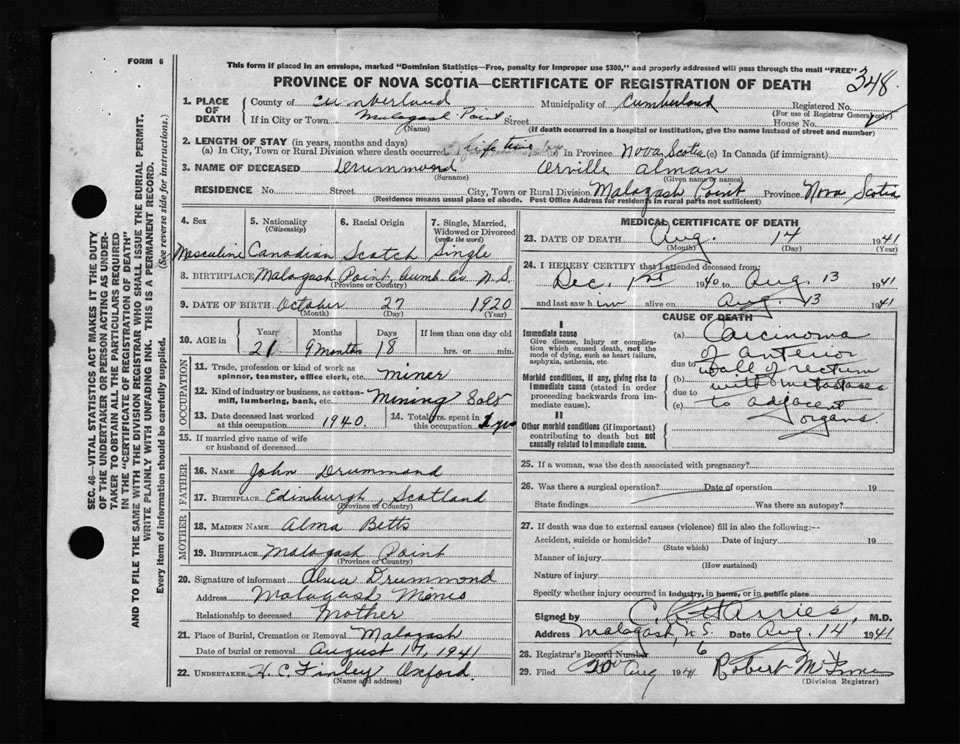 FORM 6
This form if placed in an envelope, marked "Dominion Statistics—Free, penalty for improper use $300," and properly addressed will pass through the mail "FREE"
PROVINCE OF NOVA SCOTIA—CERTIFICATE OF REGISTRATION OF DEATH
348
1. PLACE OF DEATH
County of Cumberland Municipality of Cumberland Registered No.
(For use of Registrar General only)
If in City or Town Malagash Point Street House No.
(Name) (If death occurred in a hospital or institution, give the name instead of street and number)
2. LENGTH OF STAY (in years, months and days)
(a) In City, Town or Rural Division where death occurred life time (b) In Province Nova Scotia (c) In Canada (if immigrant)
3. NAME OF DECEASED Drummond Orville Alman
(Surname) (Given name or names)
RESIDENCE No. Street City, Town or Rural Division Malagash Point Province Nova Scotia
(Residence means usual place of abode. Post Office Address for residents in rural parts not sufficient)
4. Sex
Masculine
5. Nationality
(Citizenship)
Canadian
6. Racial Origin
Scotch
7. Single, Married, Widowed or Divorced
(write the word)
Single
8. BIRTHPLACE Malagash Point, Cumb. Co. N.S.
(Province or Country)
9. DATE OF BIRTH October 27 1920
(Month) (Day) (Year)
10. AGE in
Years Months Days If less than one day old
21 9 months 18 hrs. or min.
OCCUPATION
11. Trade, profession or kind of work as spinner, teamster, office clerk, etc. miner
12. Kind of industry or business, as cotton-mill, lumbering, bank, etc. Mining Salt
13. Date deceased last worked at this occupation 1940.
14. Total yrs. spent in this occupation 1 yr
15. If married give name of wife or husband of deceased
FATHER
16. NAME John Drummond
17. BIRTHPLACE Edinburgh, Scotland
(Province or Country)
MOTHER
18. MAIDEN NAME Alma Betts
19. BIRTHPLACE Malagash Point
(Province or Country)
20. Signature of informant Drummond
Address Malagash Mines
Relationship to deceased Mother
21. Place of Burial, Cremation or Removal Malagash
Date of burial or removal August 17, 1941
22. UNDERTAKER H. C. Finley Oxford.
(Name and address)
MEDICAL CERTIFICATE OF DEATH
23. DATE OF DEATH Aug. 14 1941
(Month) (Day) (Year)
24. I HEREBY CERTIFY that I attended deceased from:
Dec. 1st 1940 to Aug. 13 1941
and last saw him alive on Aug. 13 1941
CAUSE OF DEATH
I
Immediate cause
Give disease, injury or complication which caused death, not the mode of dying, such as heart failure, asphyxia, asthenia, etc.
Morbid conditions, if any, giving rise to immediate cause (stated in order proceeding backwards from immediate cause).
II
Other morbid conditions (if important) contributing to death but not causally related to immediate cause.
(a) Carcinoma
of anterior
due to wall of rectum
(b) with metastases
due to to adjacent
(c) organs.
25. If a woman, was the death associated with pregnancy?
26. Was there a surgical operation? Date of operation 19
State findings Was there an autopsy?
27. If death was due to external causes (violence) fill in also the following:—
Accident, suicide or homicide? Date of injury 19
(State which)
Manner of injury
(How sustained)
Nature of injury
Specify whether injury occurred in industry, in home, or in public place
Signed by M.D.
Address Malagash, N.S. Date Aug. 14, 1941
28. Registrar's Record Number 6
29. Filed Aug 1941 Robert
(Division Registrar)
SEC. 46—VITAL STATISTICS ACT MAKES IT THE DUTY
OF THE UNDERTAKER OR PERSON ACTING AS UNDER-
TAKER TO OBTAIN ALL THE PARTICULARS REQUIRED
IN THE "CERTIFICATE OF REGISTRATION OF DEATH"
AND TO FILE THE SAME WITH THE DIVISION REGISTRAR WHO SHALL ISSUE THE BURIAL PERMIT.
WRITE PLAINLY WITH UNFADING INK. THIS IS A PERMANENT RECORD.
Every item of information should be carefully supplied. (See reverse side for instructions.)